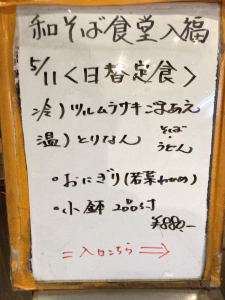 和そば食堂入福
5/11<日替定食>
冷)ツルムラサキごまあえ
温)とりなん そば・うどん
・おにぎり(若菜わかめ)
・小鉢2品付
¥880.-
=入口こちら⇒